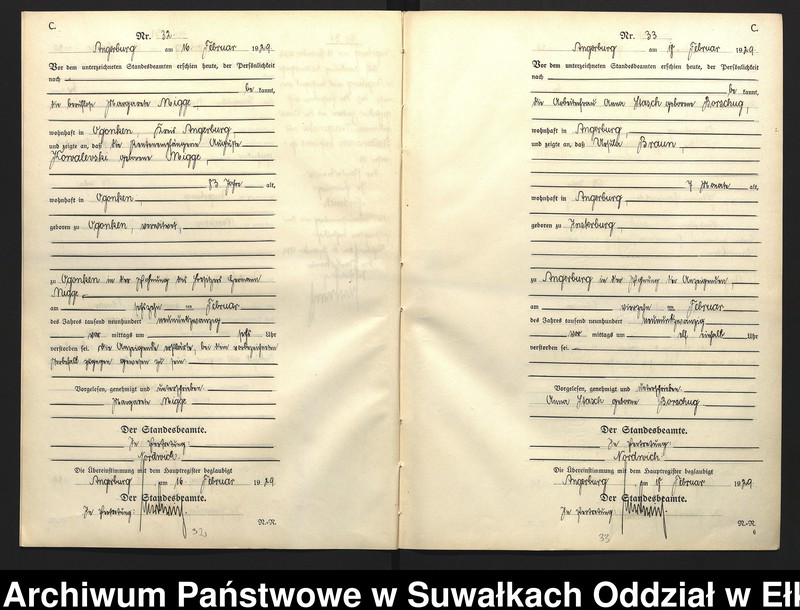 C.
Nr. 32
Angerburg am 16 Februar 1929.
Vor dem unterzeichneten Standesbeamten erschien heute, der Persönlichkeit
nach
be kannt,
die berufslose Margarete Migge,
wohnhaft in Ogonken, Kreis Angerburg,
und zeigte an, daß die Rentenempfängerin Auguste
Kowalewski geborene Migge,
83 Jahre alt,
wohnhaft in Ogonken,
geboren zu Ogonken, verwitwet,
zu Ogonken in der Wohnung des Besitzers Hermann
Migge
am sechszehn ten Februar
des Jahres tausend neunhundert neunundzwanzig
vor mittags um sechs Uhr
verstorben sei. Die Anzeigende erklärte, bei dem vorbezeichneten
Sterbefall zugegen gewesen zu sein
Vorgelesen, genehmigt und unterschrieben
Margarete Migge
Der Standesbeamte.
In Vertretung:
Nordwich
Die Übereinstimmung mit dem Hauptregister beglaubigt
Angerburg, am 16 Februar 1929.
Der Standesbeamte.
In Vertretung:
N.-N.
32
C.
Nr. 33
Angerburg am Februar 1929.
Vor dem unterzeichneten Standesbeamten erschien heute, der Persönlichkeit
nach
be kannt,
die Arbeiterfrau Anna Stasch geborene Borschug,
wohnhaft in Angerburg,
und zeigte an, daß Braun,
7 Monate alt,
wohnhaft in Angerburg,
geboren zu Insterburg,
zu Angerburg in der Wohnung der Anzeigenden,
am vierzehn ten Februar
des Jahres tausend neunhundert neunundzwanzig
vor mittags um elf einhalb Uhr
verstorben sei.
Vorgelesen, genehmigt und unterschrieben
Anna Stasch geborene Borschug
Der Standesbeamte.
In Vertretung:
Nordwich
Die Übereinstimmung mit dem Hauptregister beglaubigt
Angerburg, am Februar 1929.
Der Standesbeamte.
In Vertretung:
N.-N.
6
33
Archiwum Państwowe w Suwałkach Oddział w Ełk